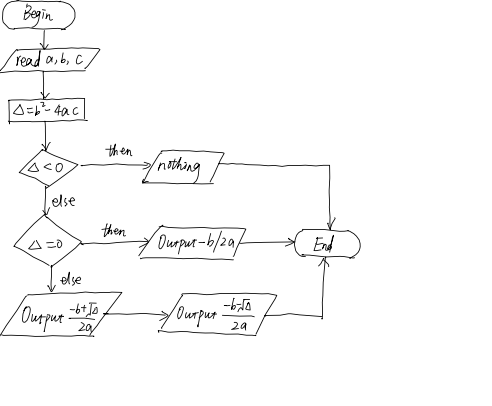 Begin
read a, b, c
Δ=b²-4ac
Δ<0
then
nothing
else
Δ=0
then
Output -b/2a
End
else
Output (-b+√Δ)/2a
Output (-b-√Δ)/2a